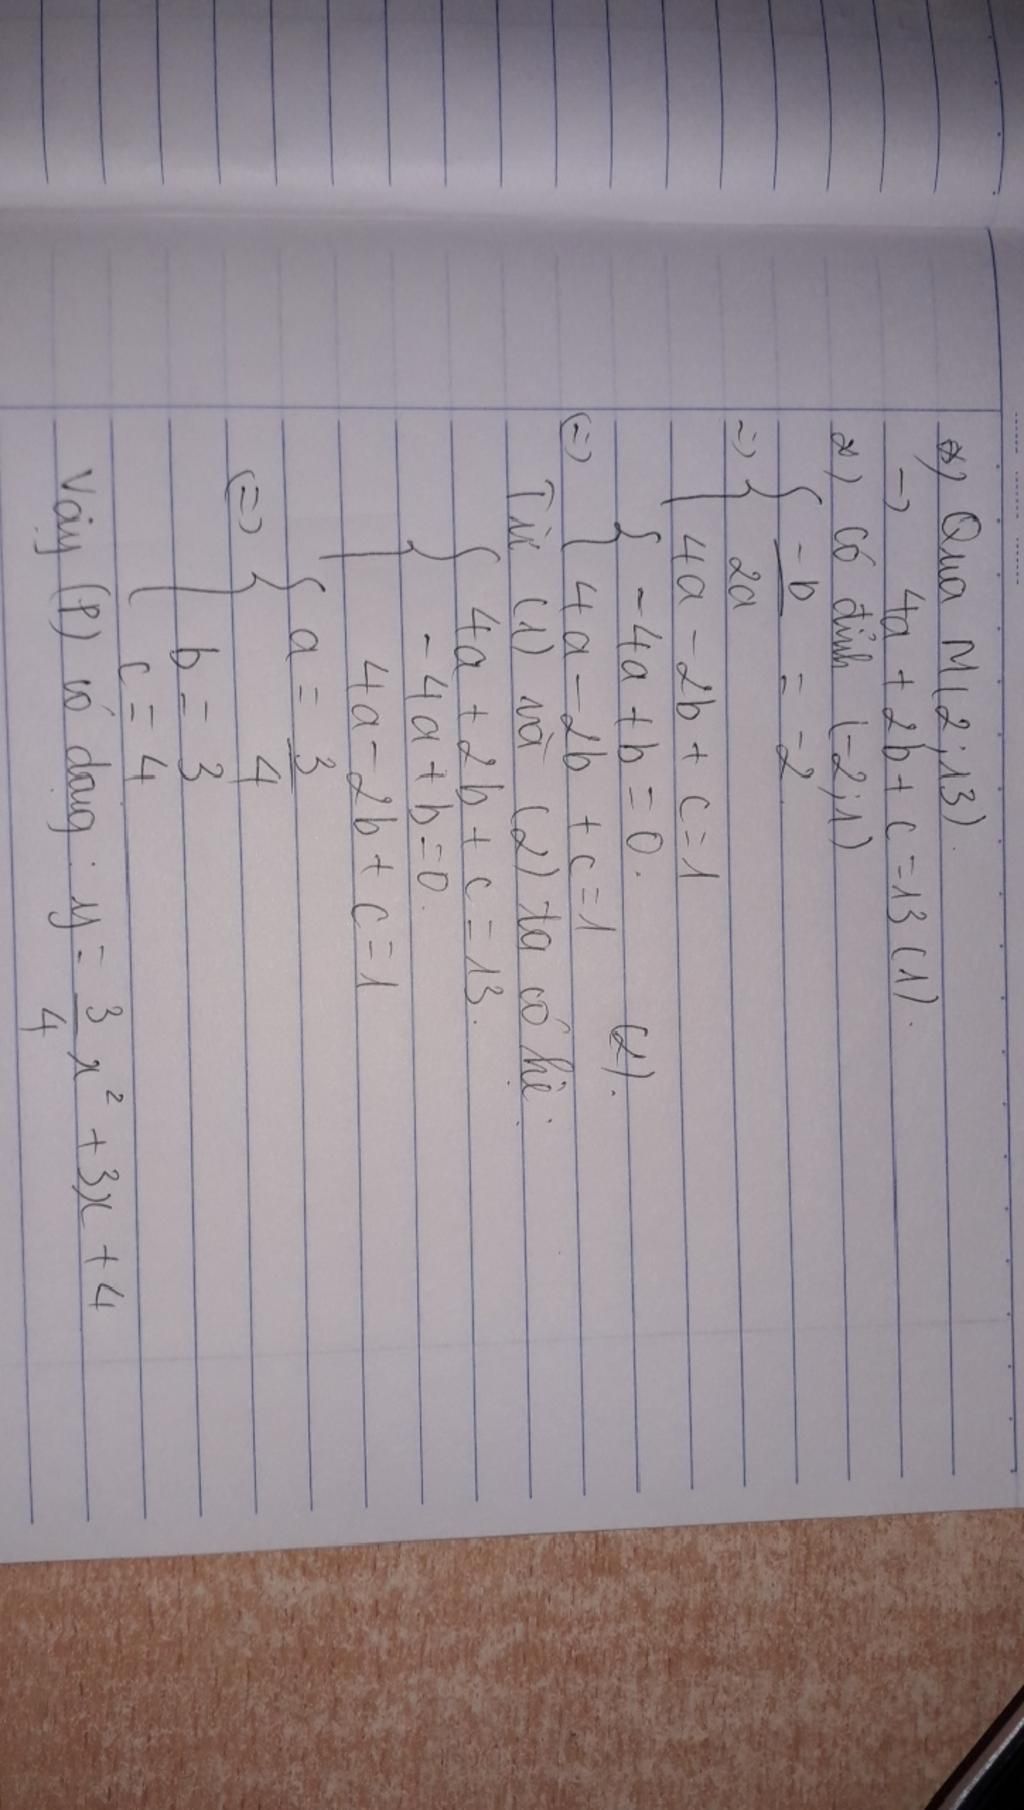 *) Qua M(2;13).
→ 4a + 2b + c = 13 (1).
*) có đỉnh (-2;1)
=> { -b/2a = -2
4a - 2b + c = 1
<=> { -4a + b = 0. (2).
4a - 2b + c = 1
Từ (1) và (2) ta có hệ:
{ 4a + 2b + c = 13.
-4a + b = 0.
4a - 2b + c = 1
<=> { a = 3/4
b = 3
c = 4
Vậy (P) có dạng: y = 3/4 x² + 3x + 4